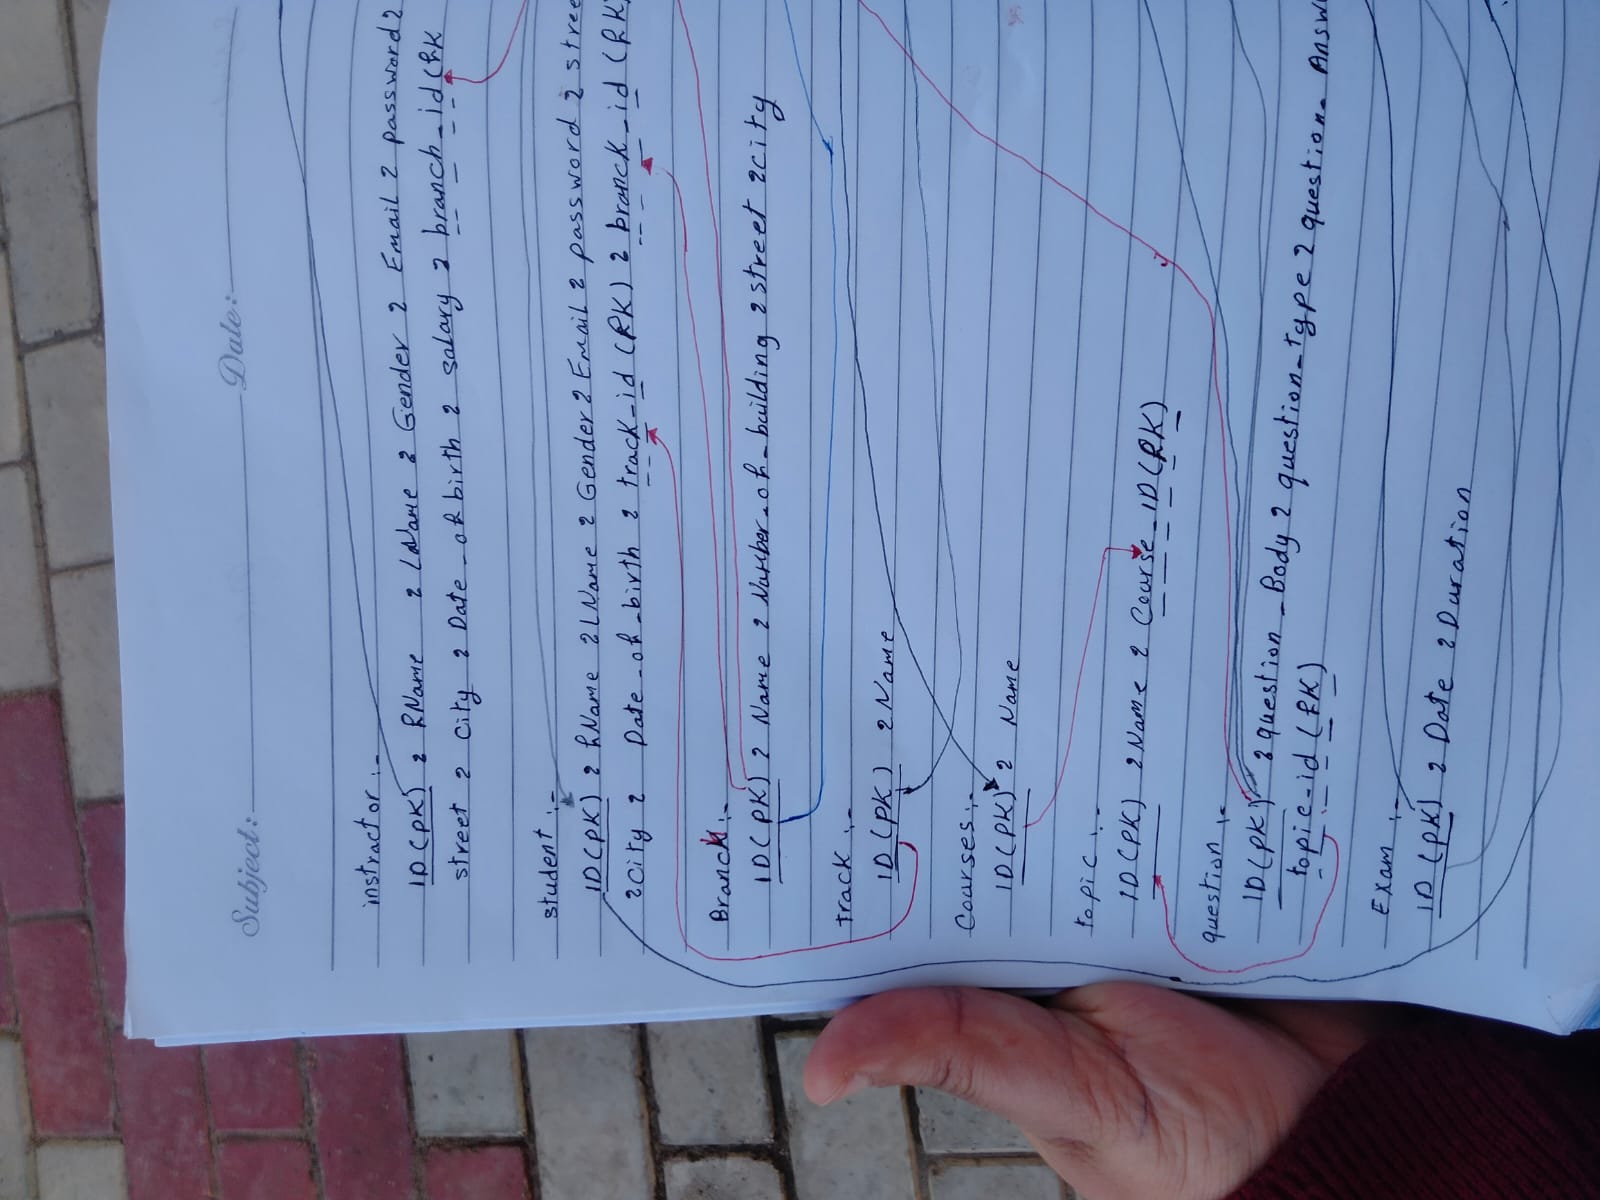 Subject: Date:
instractor :-
ID (PK) 2 RName 2 LName 2 Gender 2 Email 2 password 2
street 2 City 2 Date_oR birth 2 salary 2 branch_id (RK
student :-
ID (PK) 2 RName 2 LName 2 Gender 2 Email 2 password 2 stree
2 City 2 Date_oR_birth 2 track_id (RK) 2 branck_id (RK)
Branch :-
ID (PK) 2 Name 2 Number_oR_building 2 street 2 city
track :-
ID (PK) 2 Name
Courses :-
ID (PK) 2 Name
topic :-
ID (PK) 2 Name 2 Course_ID (RK)
question :-
ID (PK) 2 question_Body 2 question_type 2 question_Answ
topic_id (RK)
Exam :-
ID (PK) 2 Date 2 Duration